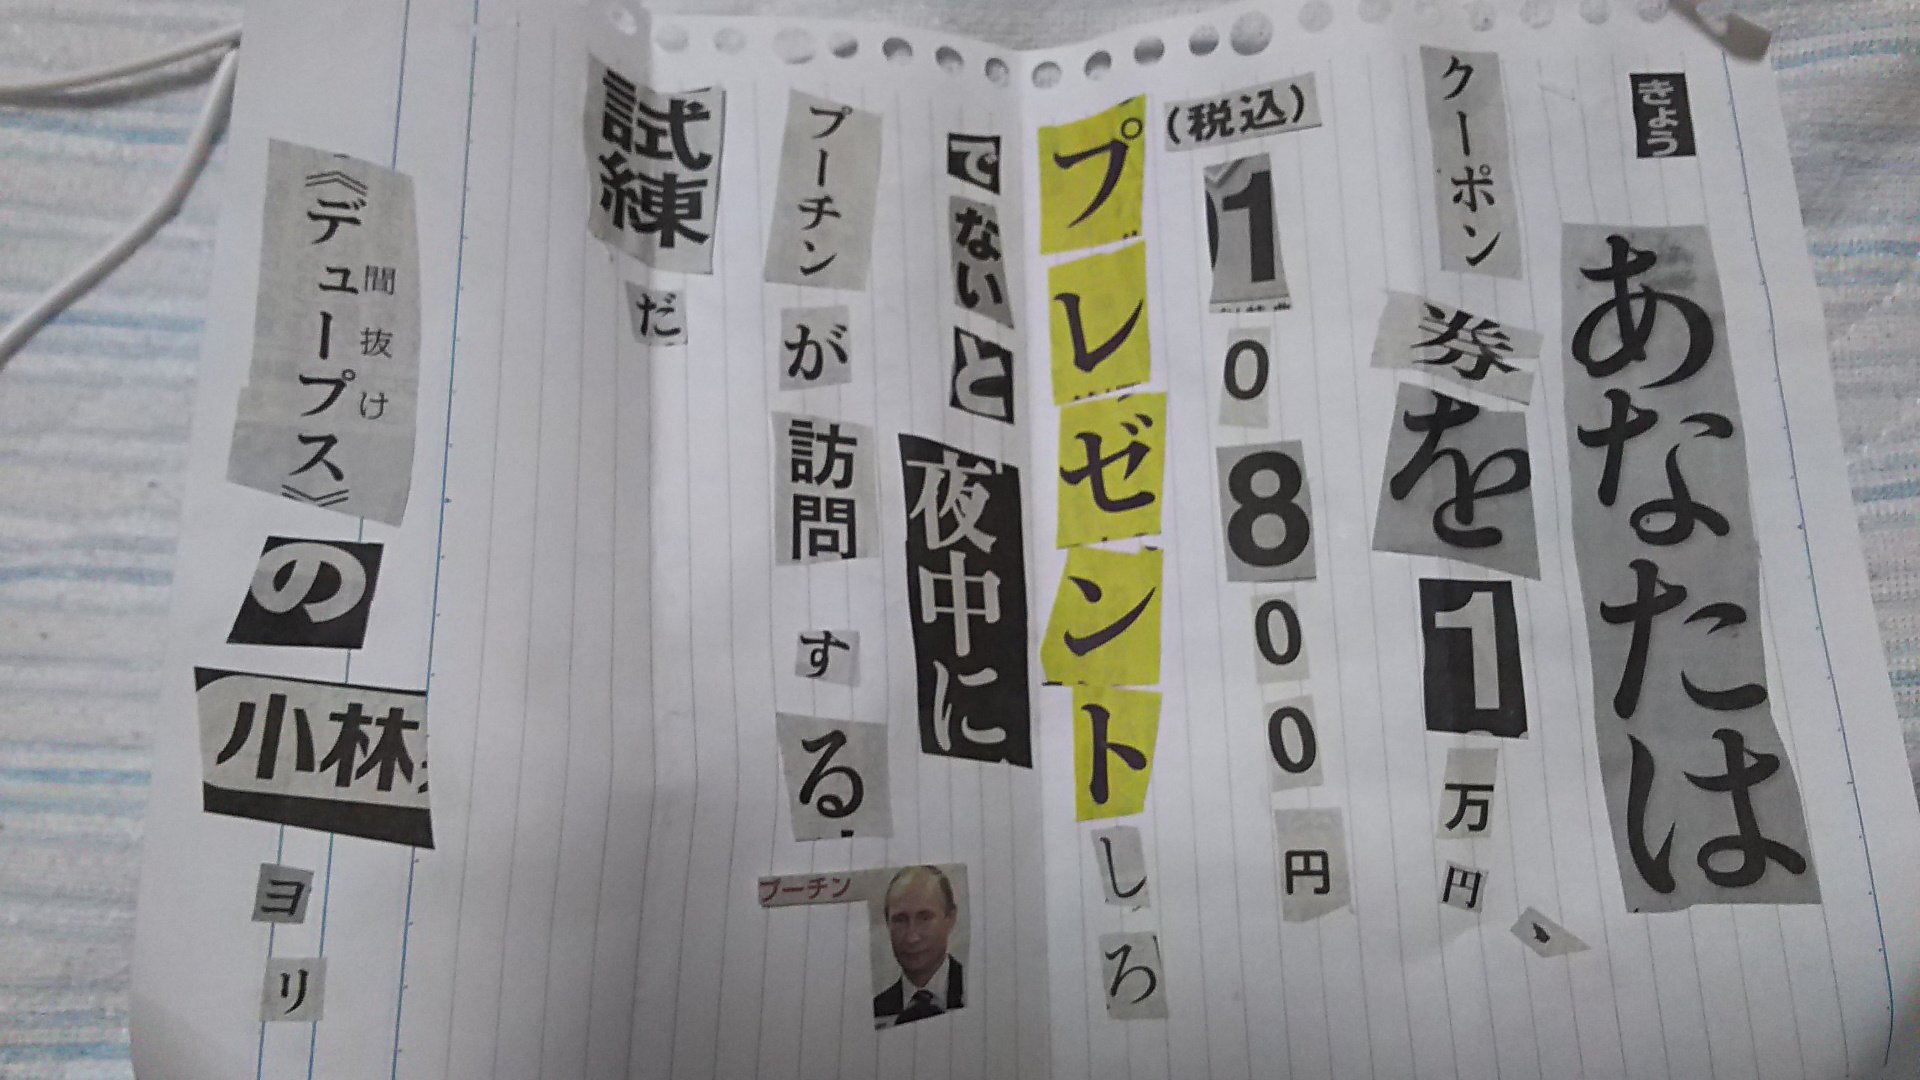 きょう
あなたは
クーポン券を1万円、
(税込)
10800円
プレゼントしろ
でないと夜中に
プーチンが訪問する
プーチン
試練だ
《デュープス》の小林ヨリ
間抜け